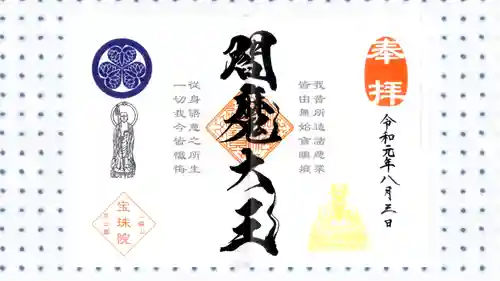 奉拝
令和元年八月三日
我昔所造諸悪業
皆由無始貪瞋癡
閻魔大王
從身語意之所生
一切我今皆懺悔
三縁山
宝珠院